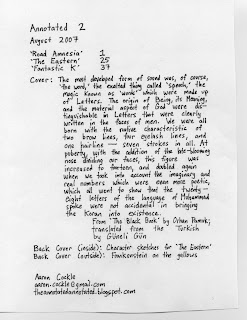 Annotated 2
August 2007
'Road Amnesia' 1
'The Eastern' 25
'Fantastic K' 37
Cover: The most developed form of sound was, of course,
'the word,' the exalted thing called "speech," the
magic known as 'words' which were made up
of Letters. The origin of Being, its Meaning,
and the material aspect of God were dis-
tinguishable in Letters that were clearly
written in the faces of men. We were all
born with the native characteristic of
two brow lines, four eyelash lines, and
one hairline — seven strokes in all. At
puberty, with the addition of the late-blooming
nose dividing our faces, this figure was
increased to fourteen, and doubled again
when we took into account the imaginary and
real numbers which were even more poetic,
which all went to show that the twenty-
eight letters of the language of Mohammad
spoke were not accidental in bringing
the Koran into existence.
From 'The Black Book' by Orhan Pamuk;
translated from the Turkish
by Güneli Gün
Back Cover (inside): Character sketches for 'The Eastern'
Back Cover (outside): Frankenstein on the gallows
Aaron Cockle
aaron.cockle@gmail.com
theannotatedannotated.blogspot.com